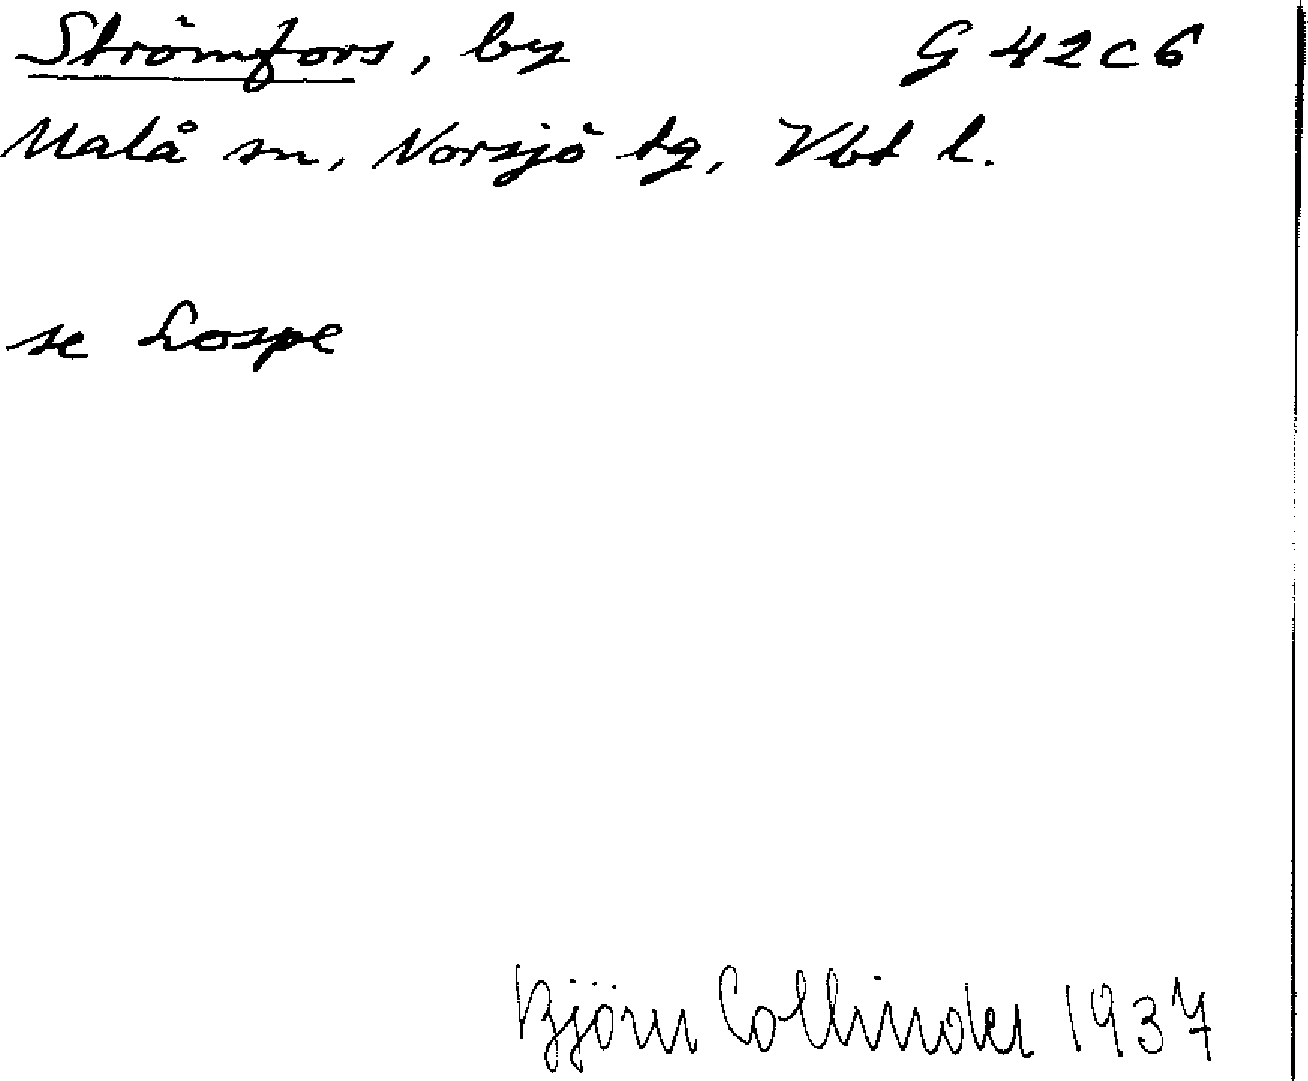 Strömfors, by G 42 c 6
Malå sn, Norsjö tg, Vbt l.
se Lospe
Björn Collinder 1937